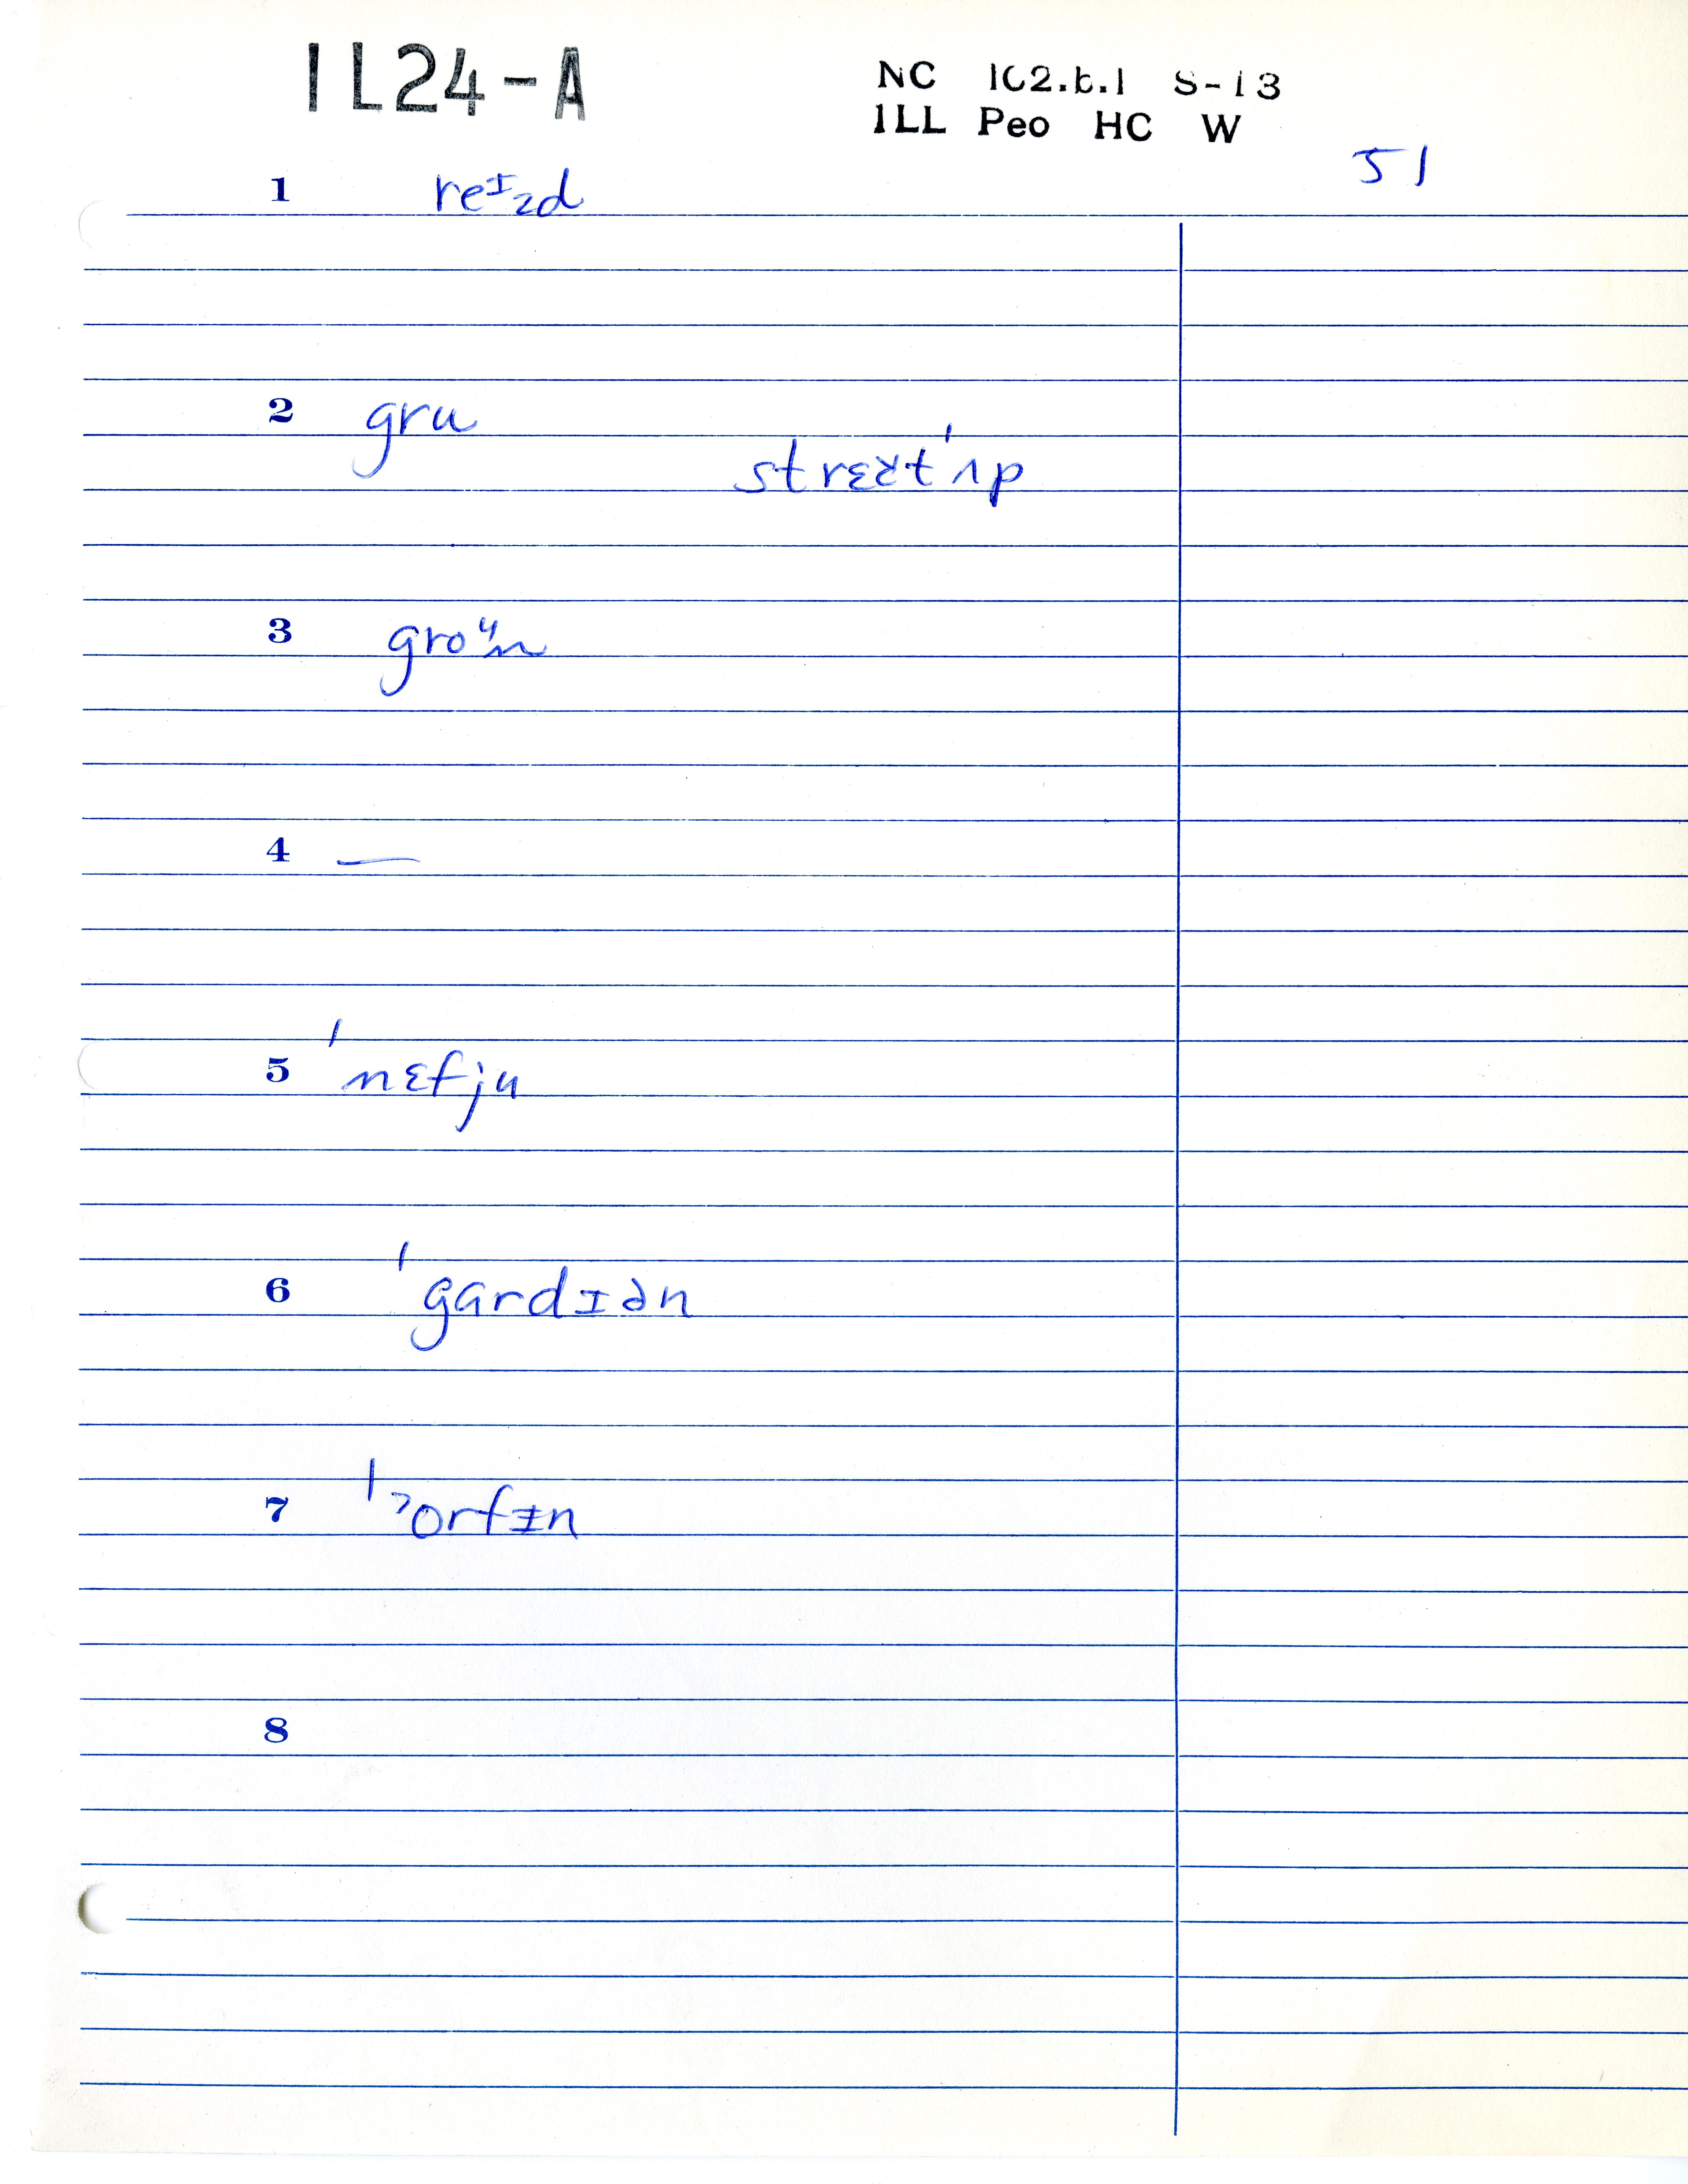 IL24-A
NC 102.b.1 S-13
ILL Peo HC W
51
1 reᶦzd
2 gru
strɛtʃt ˈʌp
3 groᶸn
4 —
5 ˈnɛfju
6 ˈgɑrdɪən
7 ˈʔɔrfɪn
8